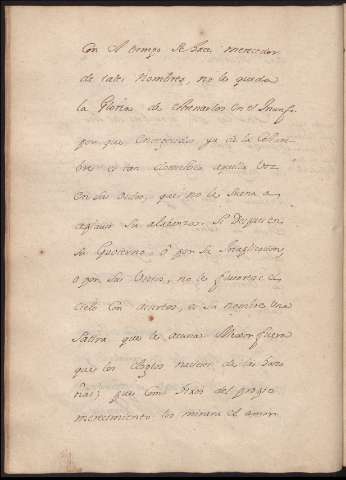 Con el tiempo se hace merecedor
de tales Nombres, no le queda
la Gloria de obtenerlos en el Triunfo.
por que ya de la Costum
bre es tan Conocida aquella Voz
en sus oidos, que no le suena a
aplauso su alabanza. Si Despues en
su Govierno, ô por su
o por sus Vicios, no le favorece el
cielo Con aciertos, es su nombre una
Satira que le acusa. Mejor fuera
que los elogios nacieran de las haza
ñas; pues como hixos del propio
merecimiento los mirara el amor